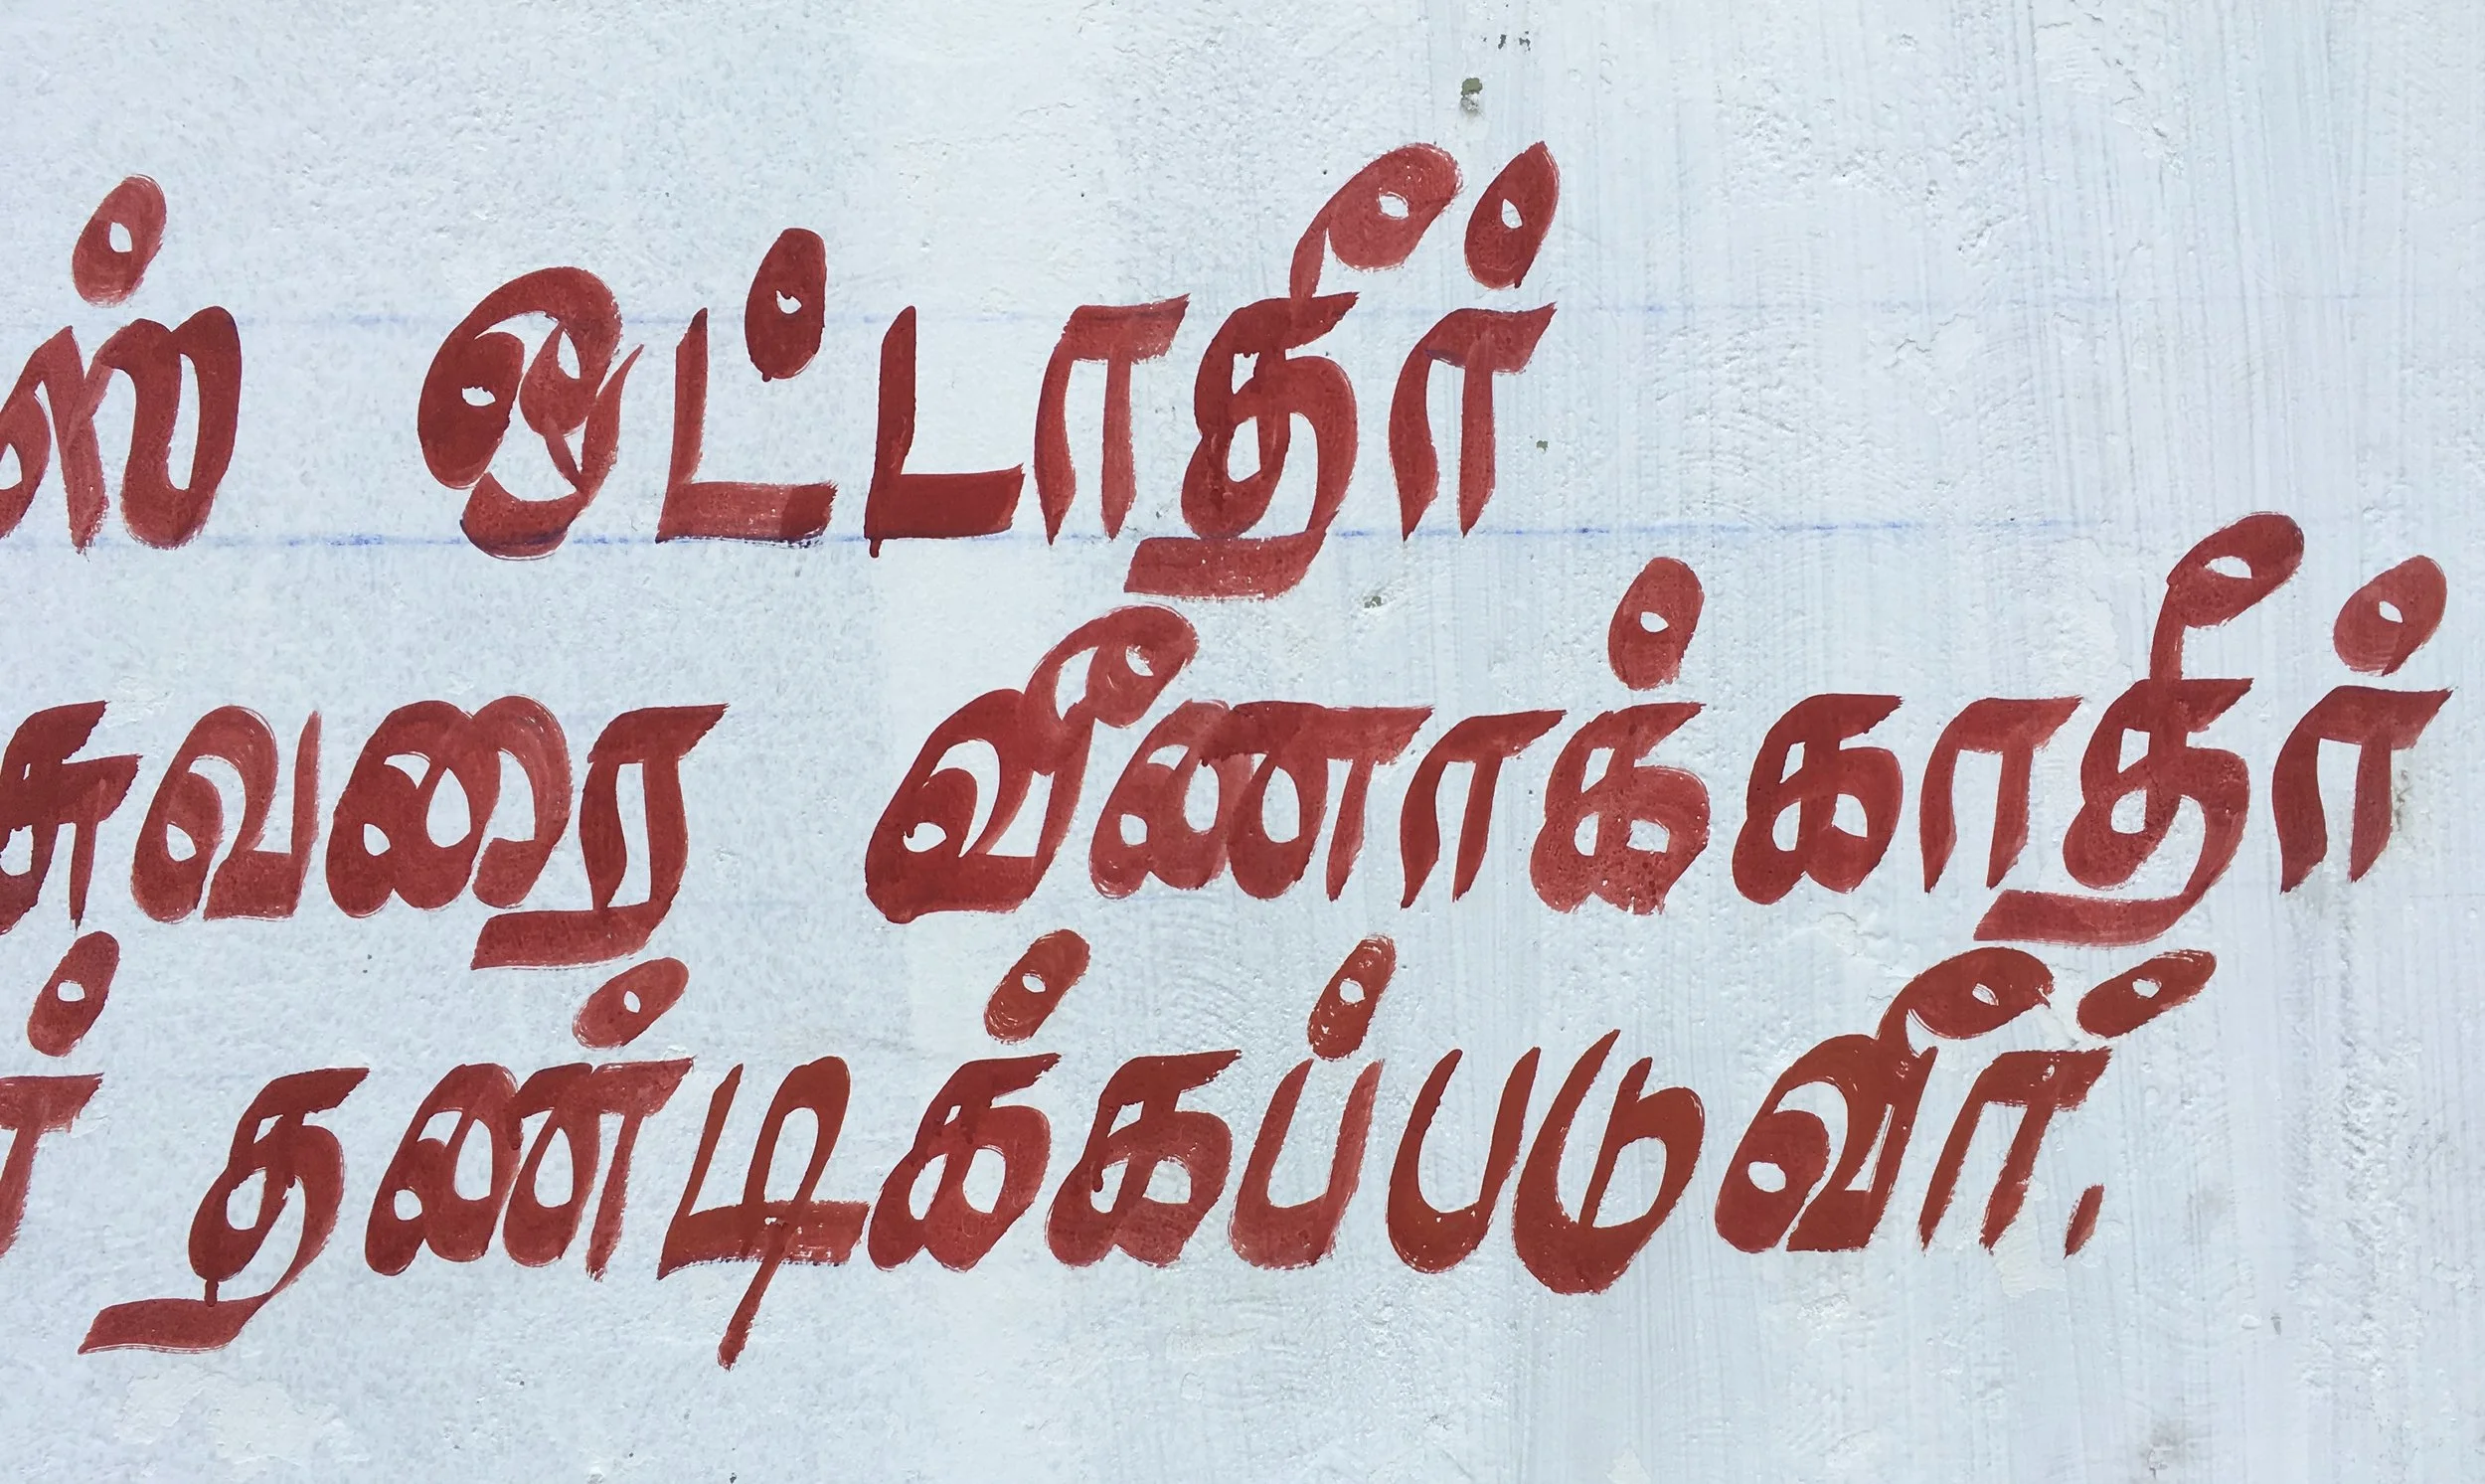 ஸ் ஒட்டாதீர்
சுவரை வீணாக்காதீர்
தண்டிக்கப்படுவீர்.